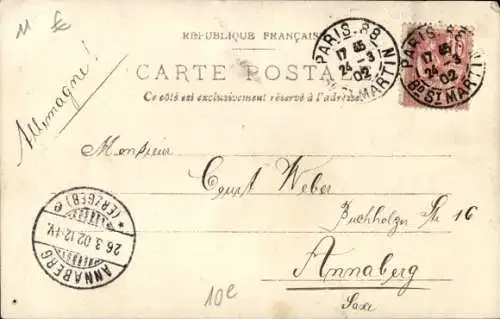 M £
RÉPUBLIQUE FRANÇAISE
CARTE POSTA
Ce côté est exclusivement réservé à l'adresse
PARIS-88
17 45
24 -3
02
Bd St MARTIN
PARIS-88
17 45
24 -3
02
Bd St MARTIN
Allemagne!
Monsieur
Curt Weber
Buchholzer Str 16
Annaberg
Saxe
ANNABERG
26.3.02.12-1V.
* (ERZGEB) e
10e